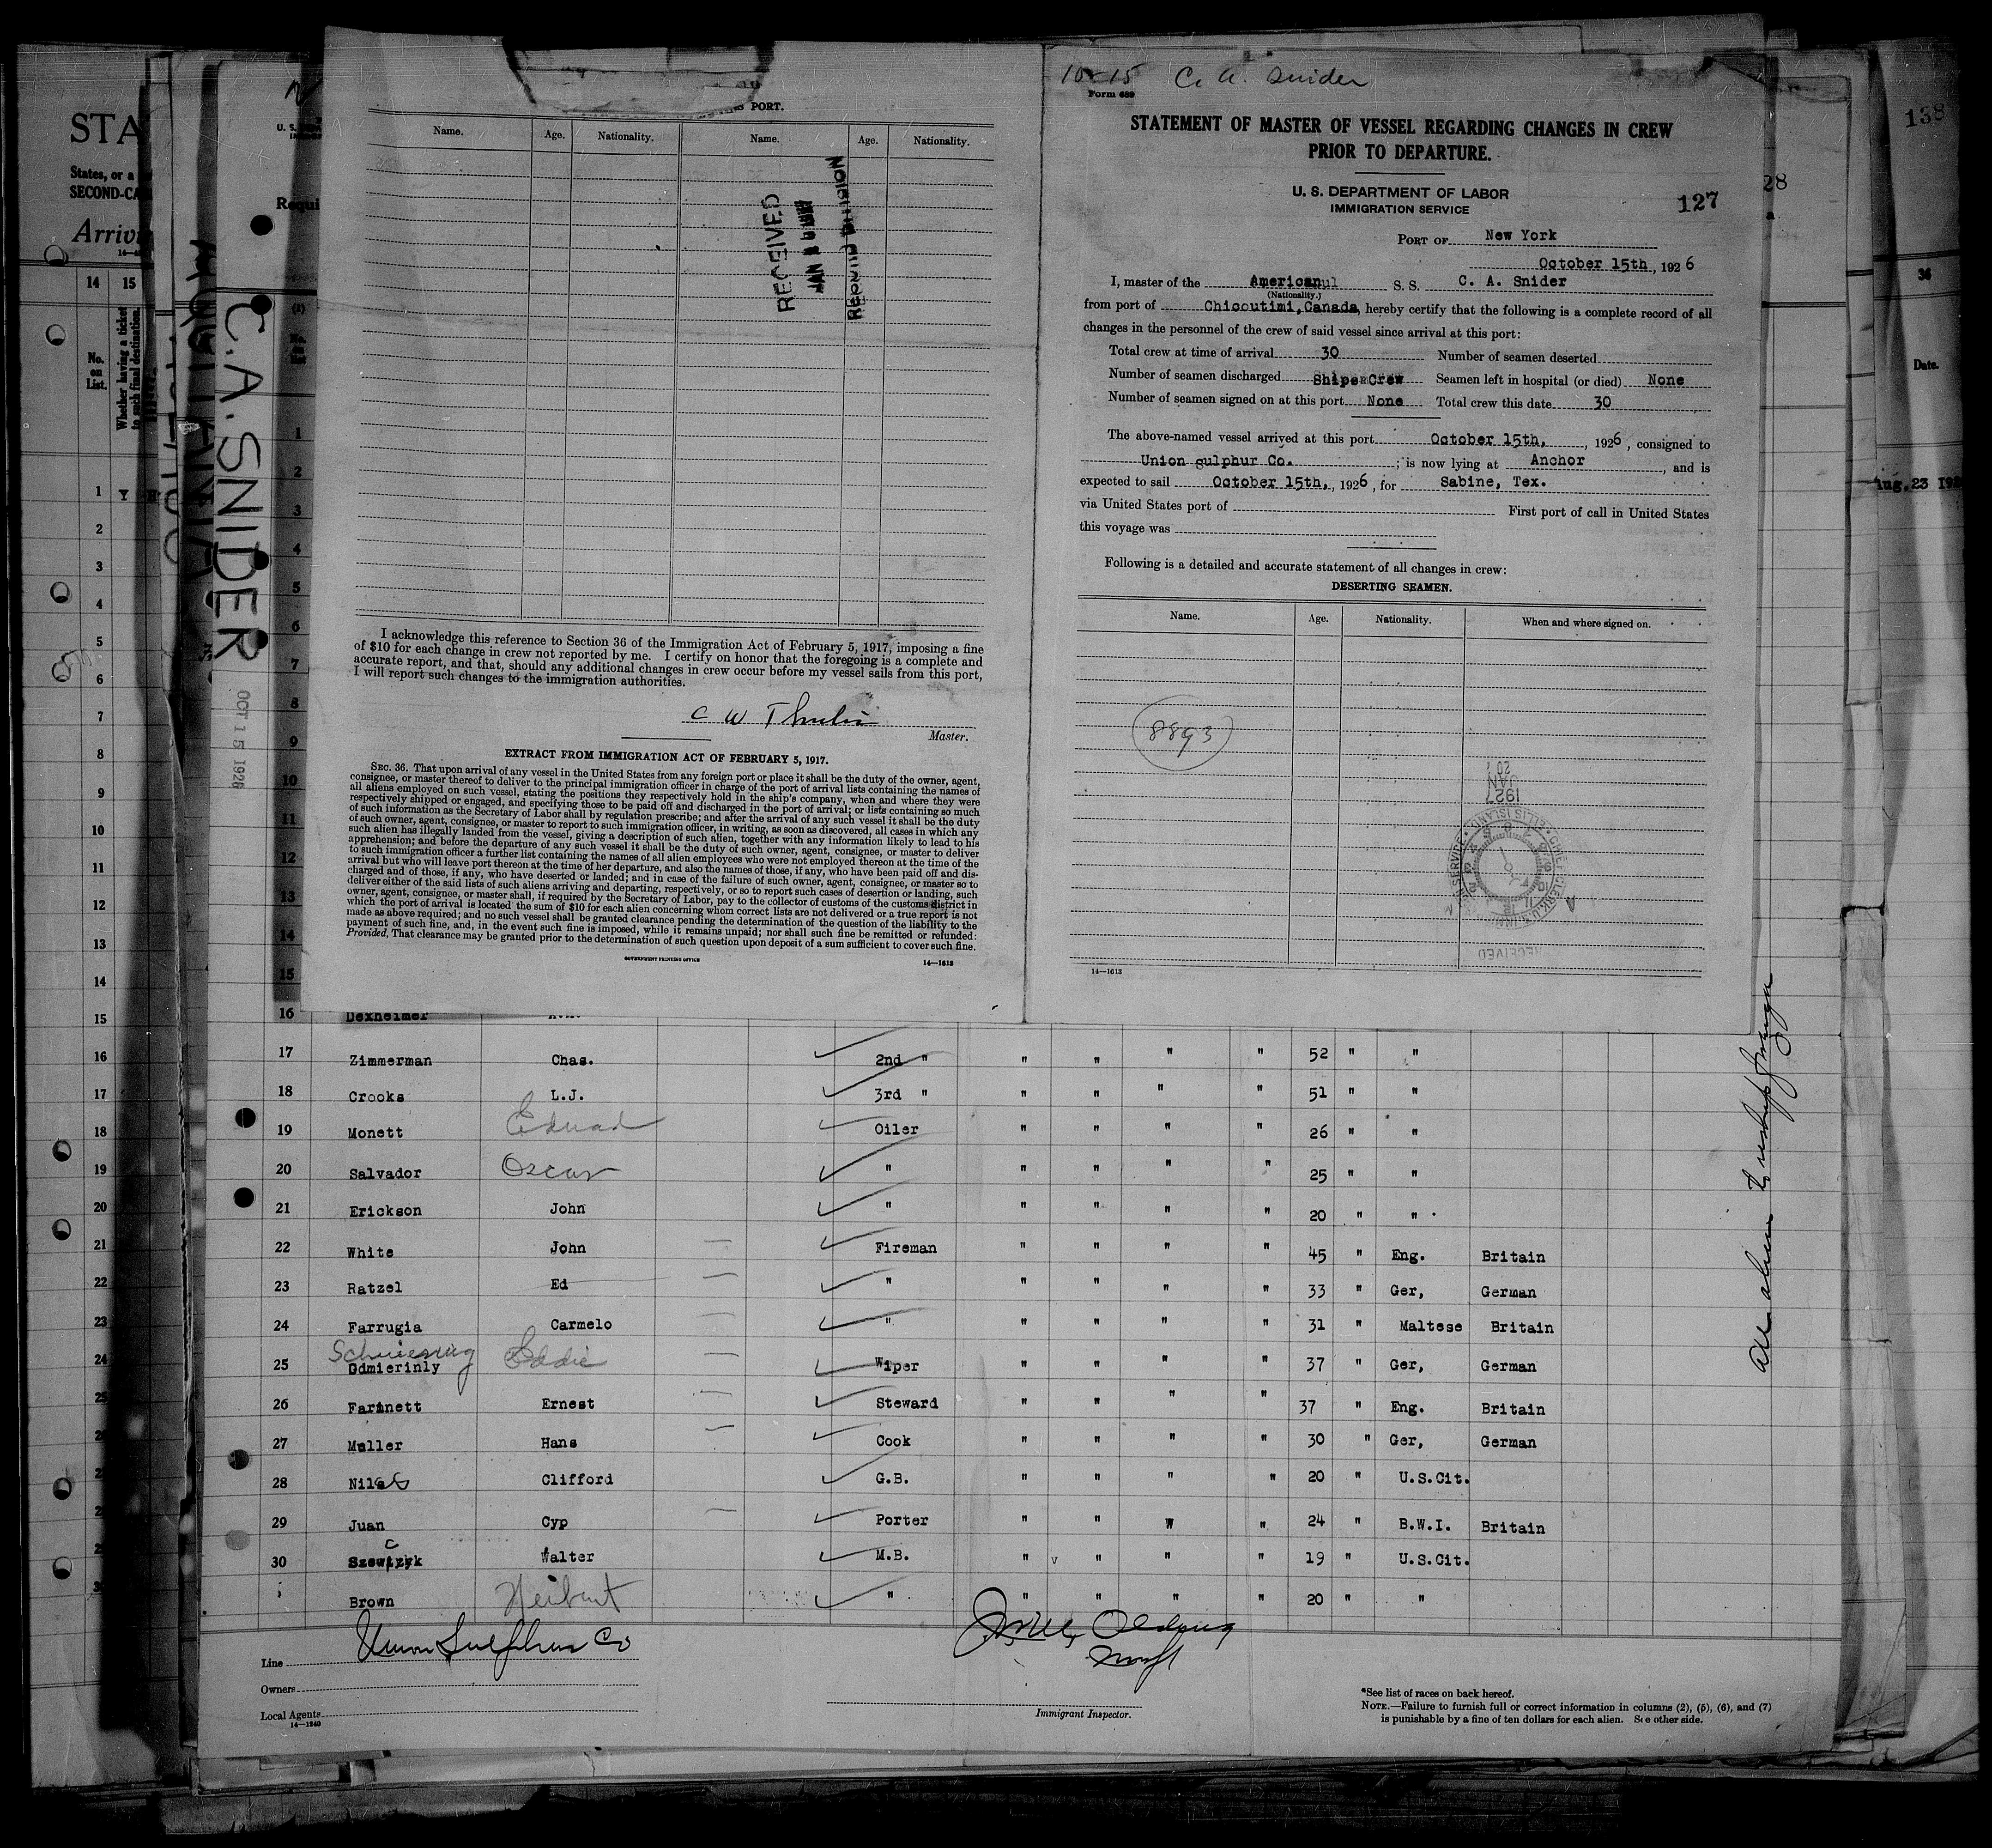 PORT.
Name. Age. Nationality. Name. Age. Nationality.
RECEIVED
JAN
DIVISION
I acknowledge this reference to Section 36 of the Immigration Act of February 5, 1917, imposing a fine
of $10 for each change in crew not reported by me. I certify on honor that the foregoing is a complete and
accurate report, and that, should any additional changes in crew occur before my vessel sails from this port,
I will report such changes to the immigration authorities.
C W
Master.
EXTRACT FROM IMMIGRATION ACT OF FEBRUARY 5, 1917.
SEC. 36. That upon arrival of any vessel in the United States from any foreign port or place it shall be the duty of the owner, agent,
consignee, or master thereof to deliver to the principal immigration officer in charge of the port of arrival lists containing the names of
all aliens employed on such vessel, stating the positions they respectively hold in the ship's company, when and where they were
respectively shipped or engaged, and specifying those to be paid off and discharged in the port of arrival; or lists containing so much
of such information as the Secretary of Labor shall by regulation prescribe; and after the arrival of any such vessel it shall be the duty
of such owner, agent, consignee, or master to report to such immigration officer, in writing, as soon as discovered, all cases in which any
such alien has illegally landed from the vessel, giving a description of such alien, together with any information likely to lead to his
apprehension; and before the departure of any such vessel it shall be the duty of such owner, agent, consignee, or master to deliver
to such immigration officer a further list containing the names of all alien employees who were not employed thereon at the time of the
arrival but who will leave port thereon at the time of her departure, and also the names of those, if any, who have been paid off and dis-
charged and of those, if any, who have deserted or landed; and in case of the failure of such owner, agent, consignee, or master so to
deliver either of the said lists of such aliens arriving and departing, respectively, or so to report such cases of desertion or landing, such
owner, agent, consignee, or master shall, if required by the Secretary of Labor, pay to the collector of customs of the customs district in
which the port of arrival is located the sum of $10 for each alien concerning whom correct lists are not delivered or a true report is not
made as above required; and no such vessel shall be granted clearance pending the determination of the question of the liability to the
payment of such fine, and, in the event such fine is imposed, while it remains unpaid; nor shall such fine be remitted or refunded:
Provided, That clearance may be granted prior to the determination of such question upon deposit of a sum sufficient to cover such fine.
GOVERNMENT PRINTING OFFICE 14—1613
10-15 C. A. Snider
Form 689
STATEMENT OF MASTER OF VESSEL REGARDING CHANGES IN CREW
PRIOR TO DEPARTURE.
U. S. DEPARTMENT OF LABOR
IMMIGRATION SERVICE
127
PORT OF New York
October 15th, 1926
I, master of the American S. S. C. A. Snider
(Nationality.)
from port of Chicoutimi, Canada, hereby certify that the following is a complete record of all
changes in the personnel of the crew of said vessel since arrival at this port:
Total crew at time of arrival 30 Number of seamen deserted
Number of seamen discharged Ships Crew Seamen left in hospital (or died) None
Number of seamen signed on at this port None Total crew this date 30
The above-named vessel arrived at this port October 15th, , 1926, consigned to
Union sulphur Co. ; is now lying at Anchor , and is
expected to sail October 15th, , 1926, for Sabine, Tex.
via United States port of First port of call in United States
this voyage was
Following is a detailed and accurate statement of all changes in crew:
DESERTING SEAMEN.
Name. Age. Nationality. When and where signed on.
8893
1927
JAN
20
ELLIS ISLAND
RECEIVED
14—1613
STA
States, or a
SECOND-CA
Arrivi
14 15
No. on List.
Whether having a ticket to such final destination.
1
2
3
4
5
6
7
8
9
10
11
12
13
14
15
16
17
18
19
20
21
22
23
24
25
Requi
C.A. SNIDER
OCT 15 1926
1
2
3
4
5
6
7
8
9
10
11
12
13
14
15
138
28
36
Date.
Aug. 23 192
16 Dexheimer
17 Zimmerman Chas. 2nd " " " " " 52 " "
18 Crooks L.J. 3rd " " " " " 51 " "
19 Monett Edward Oiler " " " " 26 " "
20 Salvador Oscar " " " " " 25 " "
21 Erickson John " " " " " 20 " "
22 White John Fireman " " " " 45 " Eng. Britain
23 Ratzel Ed " " " " " 33 " Ger, German
24 Farrugia Carmelo " " " " " 31 " Maltese Britain
25 Eddie Wiper " " " " 37 " Ger, German
26 Farnnett Ernest Steward " " " " 37 " Eng. Britain
27 Muller Hans Cook " " " " 30 " Ger, German
28 Niles Clifford G.B. " " " " 20 " U.S.Cit.
29 Juan Cyp Porter " " " " 24 " B.W.I. Britain
30 Walter M.B. " v " " " 19 " U.S.Cit.
Brown Heibert " " " " " 20 " "
Line Union Sulphur Co
Owners
Local Agents
14—1240
Immigrant Inspector.
*See list of races on back hereof.
NOTE.—Failure to furnish full or correct information in columns (2), (5), (6), and (7)
is punishable by a fine of ten dollars for each alien. See other side.